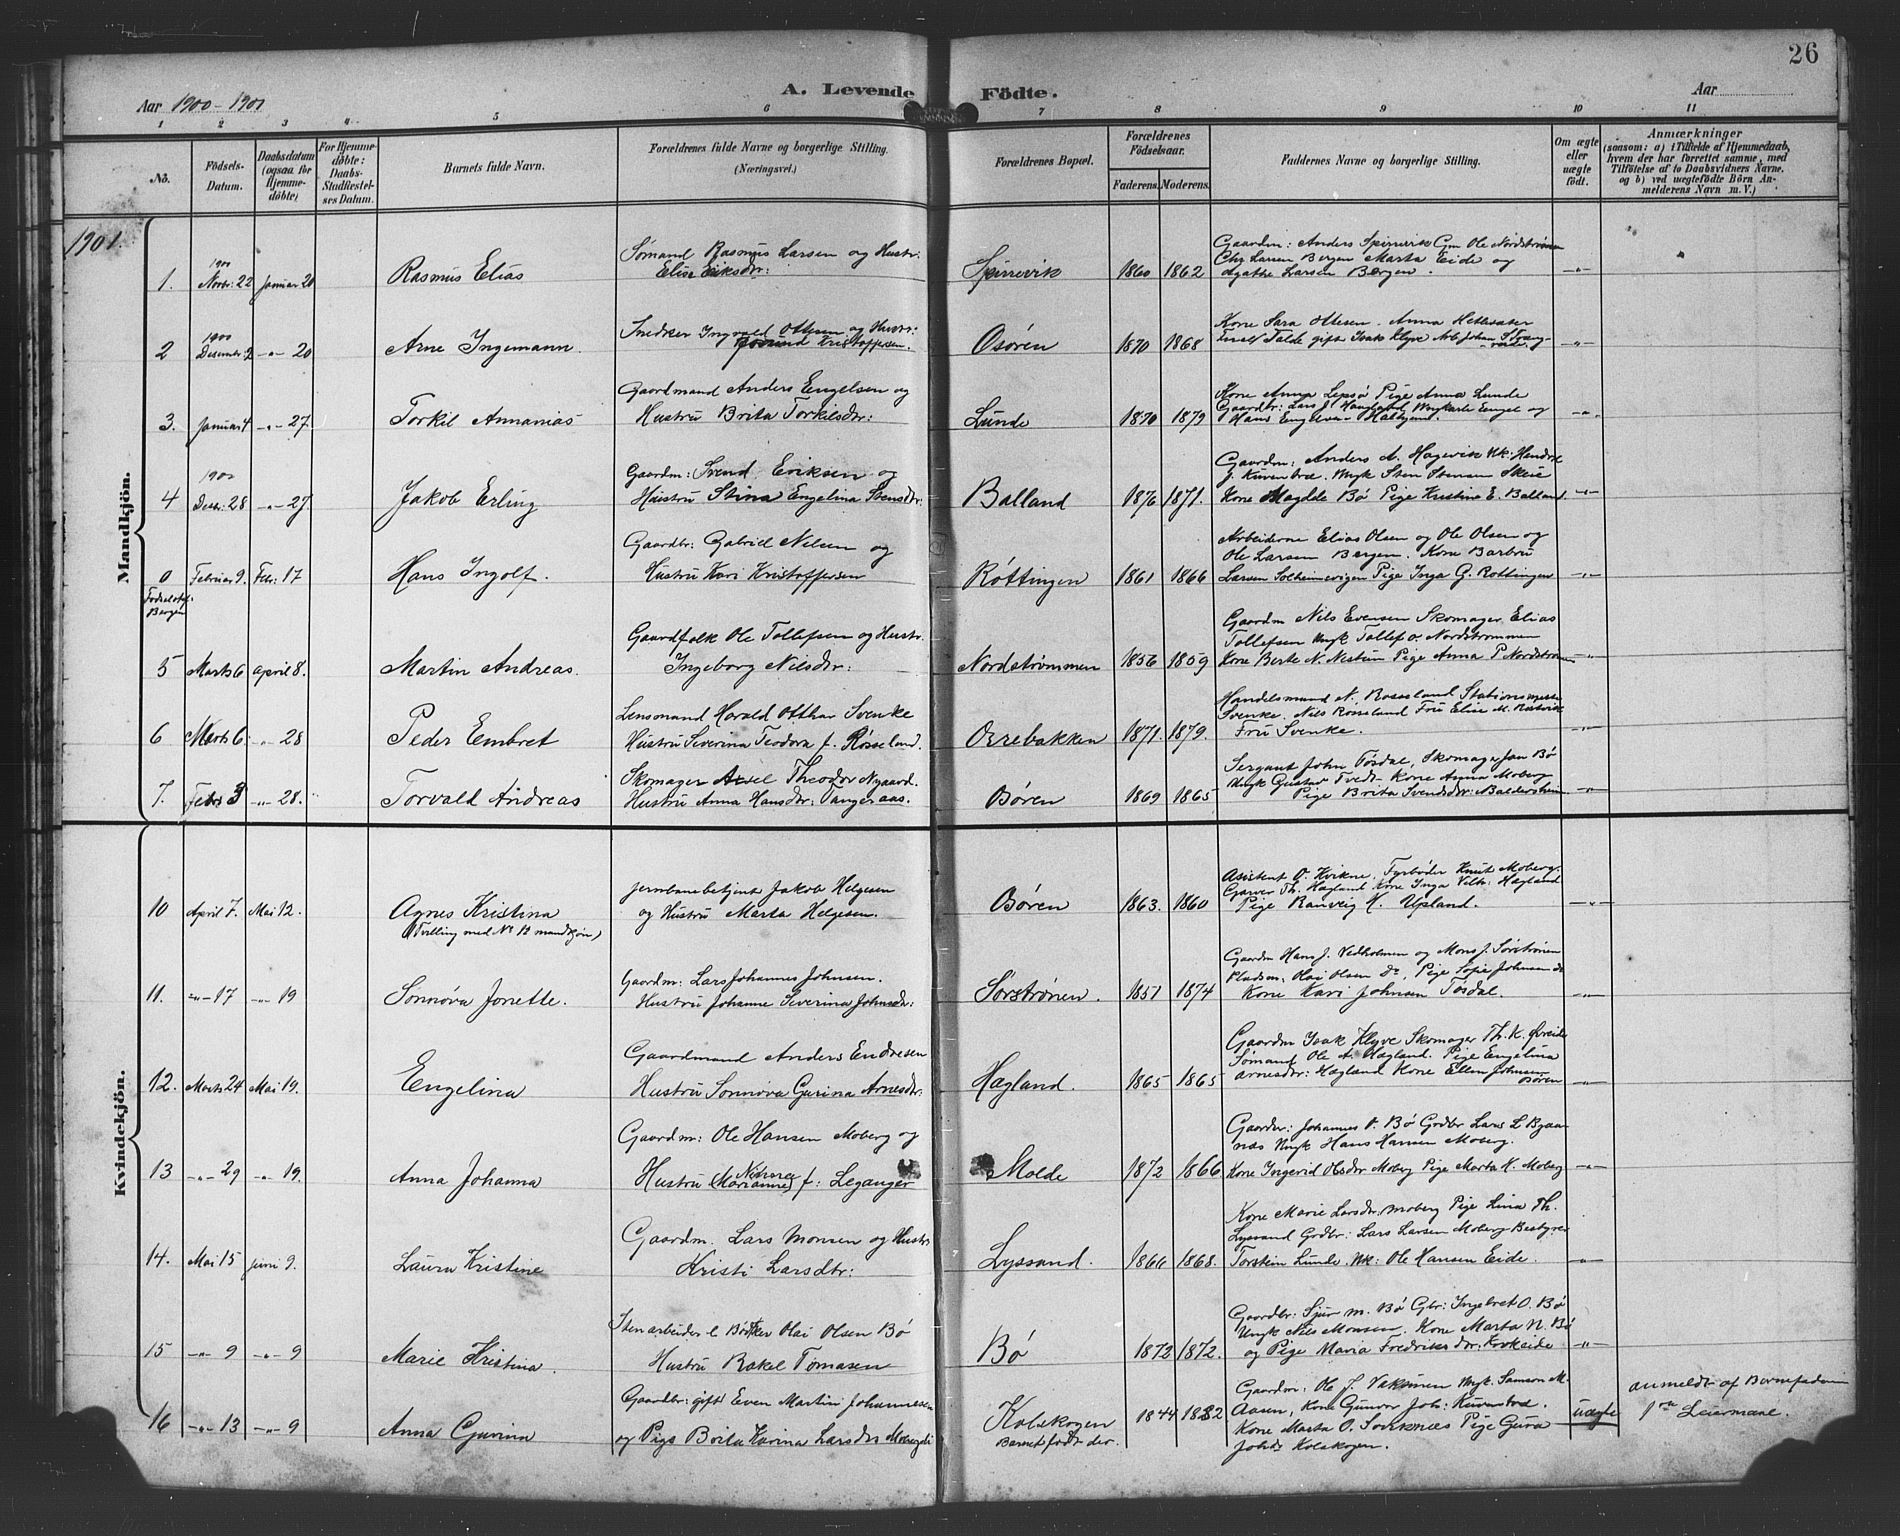 26
Aar 1900-1901
A. Levende Födte.
Aar
1 2 3 4 5 6 7 8 9 10 11
No.
Födsels-Datum.
Daabsdatum (ogsaa for Hjemme-döbte)
For Hjemme-döbte: Daabs-Stadfæstel-ses Datum.
Barnets fulde Navn.
Forældrenes fulde Navne og borgerlige Stilling. (Næringsvei.)
Forældrenes Bopæl.
Forældrenes Födselsaar.
Faderens. Moderens.
Faddernes Navne og borgerlige Stilling.
Om ægte eller uægte födt.
Anmærkninger (saasom: a) i Tilfælde af Hjemmedaab, hvem der har forrettet samme, med Tilföielse af to Daabsvidners Navne. og b) ved uægtefödte Börn An-melderens Navn m. V.)
1901.
Mandkjön.
1. 1900 Novbr: 22 Januar 20 Rasmus Elias
Sømand Rasmus Larsen og Hustr: Elise Eriksdtr:
Spirrevik 1860 1862
Gaardm: Anders Spirrevik Gm Ole Nordstrønen
Chr Larsen Bergen Marta Eide og
Agathe Larsen Bergen. -"-
2 1900 Desember 2 -"- 20 Arne Ingemann
Snedker Ingvald Ottesen og Hustr: Kristoffersen.
Osøren 1870 1868
Kone Sara Ottesen. Anna
Talde gift Isak Klyve Arb Johan -"-
3. Januar 4 -"- 27. Torkil Annanias
Gaardmand Anders Engelsen og
Hustru Brita Torkilsdr:
Lunde 1870 1879
Kone Anna Lepsø Pige Anna Lunde
Gaardbr: Lars J. Haugland Ungkarle Engel og
Hans -"-
4 1900 Desbr: 28 -"- 27. Jakob Erling
Gaardm: Svend Eriksen og
Hustru Stina Engelina Stensdr:
Balland 1876 1871.
Gaardm: Anders A. Hagevik Uk:
J. Kuventræ. Ungk Sten Stensen Skeie
Kone Magdle Bø Pige Kristine E. Balland -"-
0 Februar 9. Febr: 17 Hans Ingolf.
Fødselstif. Bergen
Gaardbr: Gabriel Nilsen og
Hustru Kari Kristoffersen
Røttingen 1861 1866
Arbeiderne Elias Olsen og Ole Olsen og
Ole Larsen Bergen. Kone Barbru
Larsen Solheimsvigen Pige Inga G. Røttingen -"-
5 Marts 6 April 8. Martin Andreas.
Gaardfolk Ole Tollefsen og Hustr.
Ingeborg Nilsdr:
Nordstrømmen 1856 1859
Gaardm Nils Evensen Skomager Elias
Tollefsen Ungk Tollef O. Nordstrømmen
Kone Berte N. Nestun Pige Anna P Nordstrømen -"-
6 Marts 6. -"- 28 Peder Embret
Lensmand Harald Otthar Svenke
Hustru Severina Teodora f. Røsseland.
Ovrebakken 1871. 1879.
Handelsmand N. Røsseland
Svenke. Nils Røsseland Fru Elise M.
Fru Svenke. -"-
7. Febr 3 -"- 28. Torvald Andreas
Skomager Axsel Theodor Nygaard.
Hustru Anna Hansdr: Tangeraas.
Børen 1869 1865
Sergant John Tøsdal, Skomager Jan Bø
Ungk Gustav Tvedt Kone Anna Moberg
Pige Brita Svendsdr: Baldersheim -"-
Kvindekjön.
10 April 7. Mai 12. Agnes Kristina
(Tvilling med No 12 mandkjøn)
Jernbanebetjent Jakob Helgesen
og Hustru Marta Helgesen.
Børen 1863. 1860
Asistent O. Kvikne. Fyrbøder Knut Moberg.
Garver Th. Hægland Kone Inga Vilh: Hægland
Pige Ranveig K. Upland. -"-
11. -"- 17 -"- 19 Sonnøva Jonette.
Gaardm: Lars Johannes Johnsen.
Hustru Johanne Severina Johnsdr:
Sørstrønen. 1851 1874
Gaardm Hans J. Vedholmen og Mons J. Sørstrønen
Pladsm. Olai Olsen Do. Pige Sofie Johnsen do
Kone Kari Johnsen Tøsdal. -"-
12. Marts 24 Mai 19. Engelina
Gaardmand Anders Endresen
Hustru Sonnøva Gurina Arnesdr:
Hægland. 1865 1865
Gaardm Isak Klyve Skomager Th. K. Øvreide
Sømand Ole A. Hægland. Pige Engelina
Arnesdr: Hægland Kone Ellen Johnsen
Osøren -"-
13 -"- 29 -"- 19. Anna Johanna
Gaardm: Ole Hansen Moberg og
Hustru (Marianne) f: Leganger
Molde 1872 1866
Gaardbr: Johannes O. Bø Grdbr Lars L
Ungk Hans Hansen Moberg.
Kone Ingerid Olsdr Moberg Pige Marta K. Moberg -"-
14. Mai 15 Juni 9. Laura Kristine
Gaardm. Lars Monsen og Hustr:
Kristi Larsdtr:
Lyssand. 1866 1868.
Kone Marie Larsdr. Moberg Pige Lina Th.
Lyssand Grdbr: Lars Larsen Moberg Bestyrer
Torstein Lunde. Uk: Ole Hansen Eide. -"-
15 -"- 9 -"- 9 Marie Kristina
Stenarbeider & Bødker Olai Olsen Bø
Hustru Rakel Tomasen
Bø 1872 1872.
Gaardbr: Sjur M. Bø Gbr: Ingebret O. Bø
Ungk Nils Monsen. Kone Marta N. Bø
og Pige Maria Fredriksdr: Krokeide -"-
16 -"- 13 -"- 9 Anna Gurina
Gaardbr: gift Even Martin Johannessen
og Pige Brita Karina Larsdr
Kolskogen 1844 1882
Barnet født der.
Gaardm: Ole J. Vaksinen Ungk. Samson M.
Aasen, Kone Gunvor Joh: Kuventræ.
Kone Marta O. Sørknæs Pige Gura
Johsdr Kolskogen. uægte
anmeldt af Barnefaderen
1ste Leiermaal.